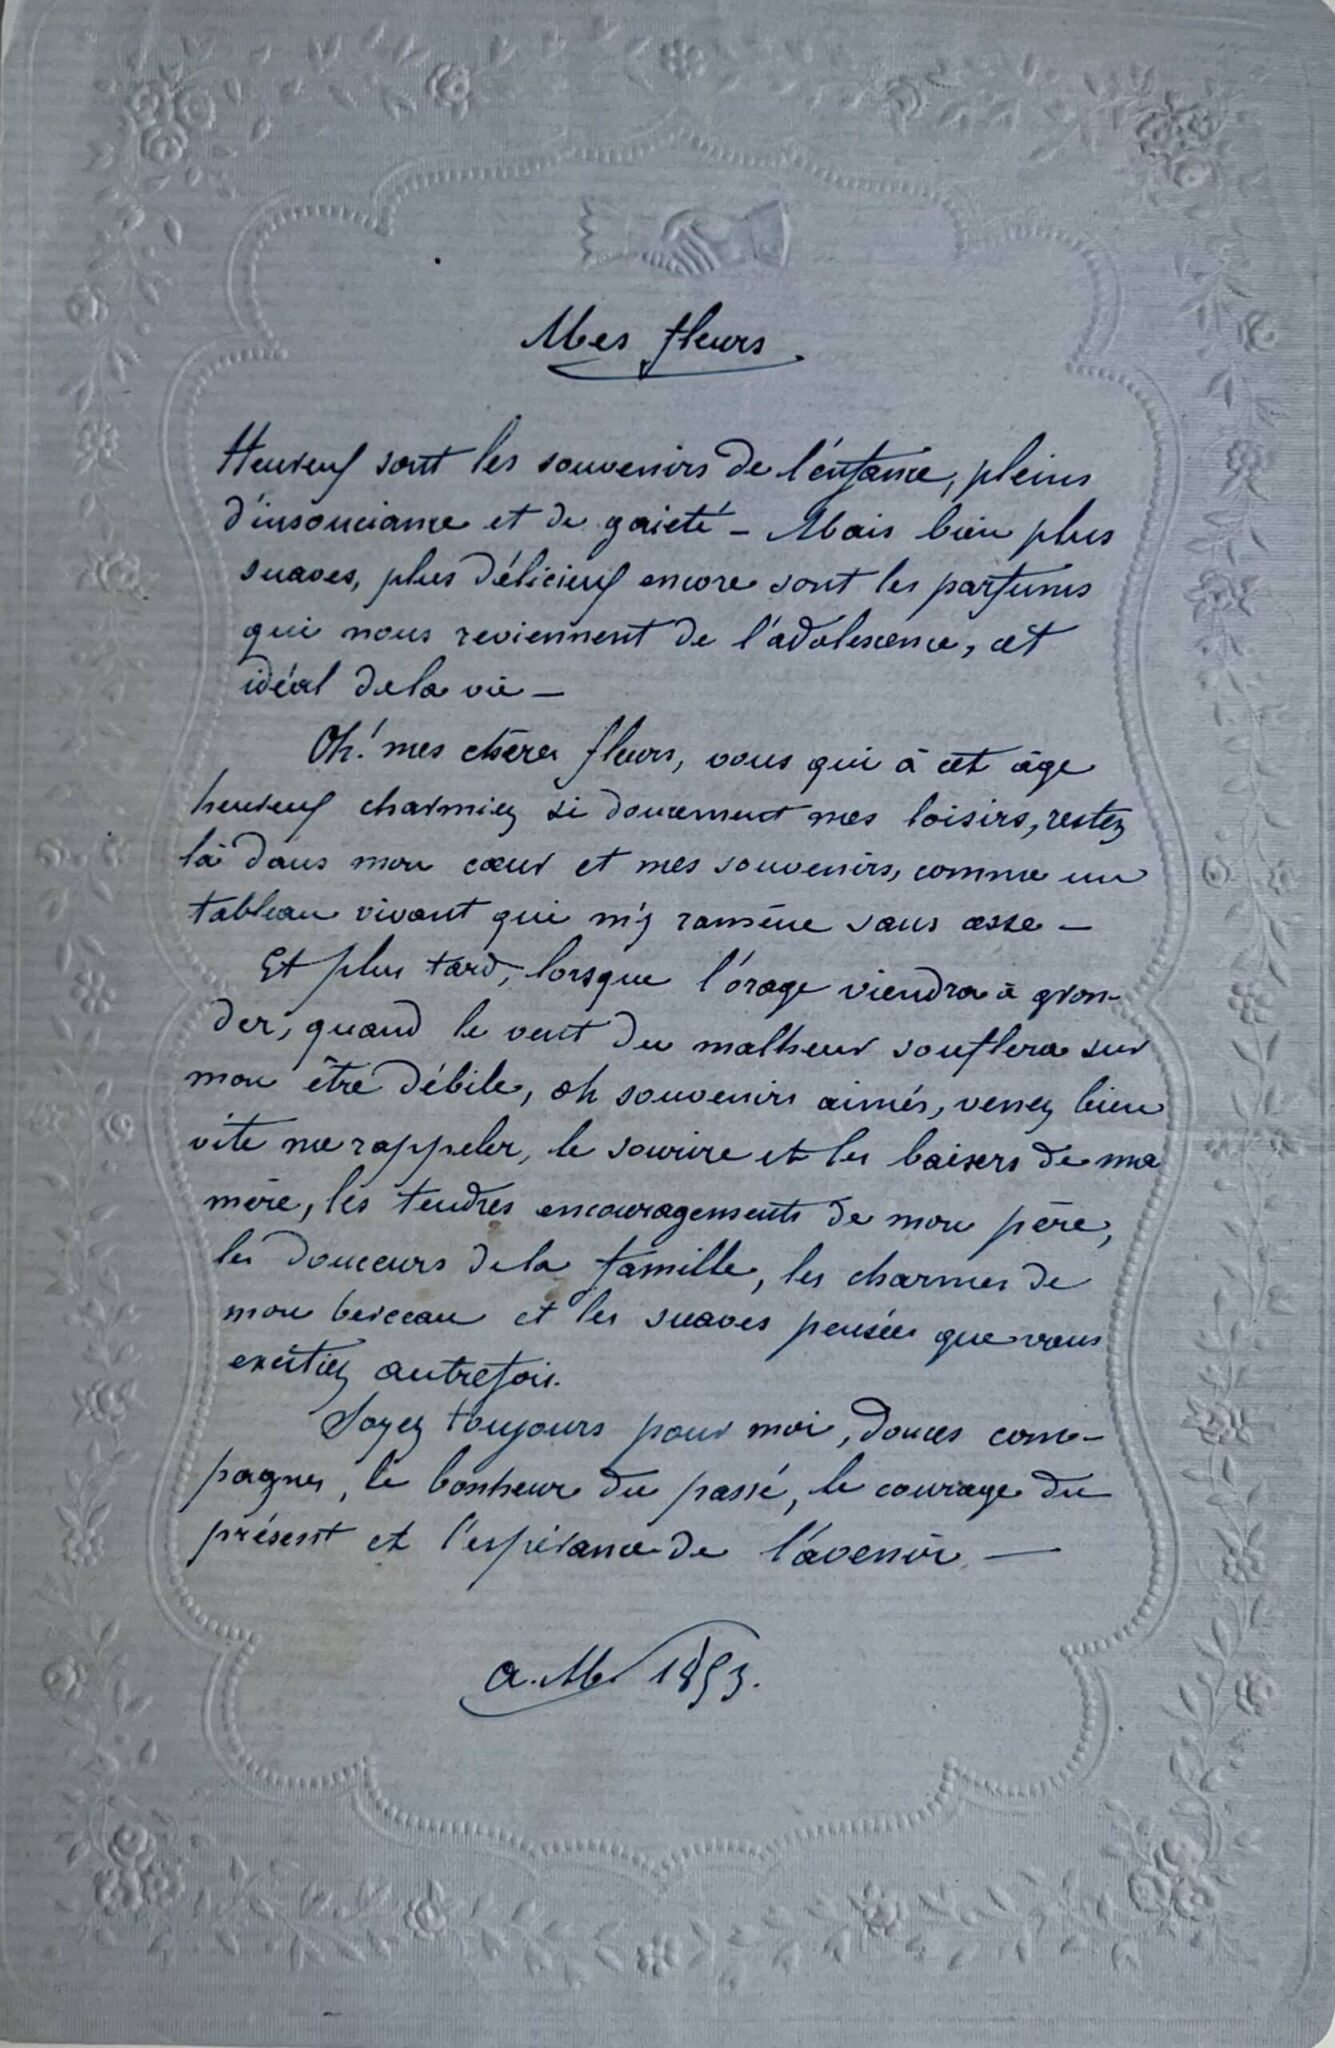 Mes fleurs
Heureux sont les souvenirs de l'enfance, pleins
d'insouciance et de gaieté – Mais bien plus
suaves, plus délicieux encore sont les parfums
qui nous reviennent de l'adolescence, cet
idéal de la vie –
Oh! mes chères fleurs, vous qui à cet âge
heureux charmiez si doucement mes loisirs, restez
là dans mon cœur et mes souvenirs, comme un
tableau vivant qui m'y ramène sans cesse –
Et plus tard, lorsque l'orage viendra à gron-
der, quand le vent du malheur souflera sur
mon être débile, oh souvenirs aimés, venez bien
vite me rappeler, le sourire et les baisers de ma
mère, les tendres encouragements de mon père,
les douceurs de la famille, les charmes de
mon berceau et les suaves pensées que vous
exitiez autrefois.
Soyez toujours pour moi, douces com-
pagnes, le bonheur du passé, le courage du
présent et l'espérance de l'avenir –
a. M. 1893.